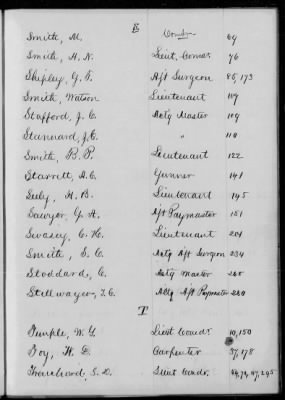 S
Smith, M. Comdr 69
Smith, A. N. Lieut. Comdr 76
Shipley, G. T. A/t Surgeon 85, 173
Smith, Watson Lieutenant 109
Stafford, J. C. Actg Master 109
Stannard, J. E. " 110
Smith, B. P. Lieutenant 122
Starrett, A. C. Gunner 141
Seely, H. B. Lieutenant 145
Sawyer, G. A. A/t Paymaster 151
Swasey, C. H. Lieutenant 201
Smith, S. C. Actg A/t Surgeon 234
Stoddard, C. Actg Master
Stillwagen, Actg A/t Paymaster
T
Temple, W. G. Lieut Comdr 10, 150
Toy, H. D. Carpenter 37, 178
Trenchard, S. D. Lieut Comdr.